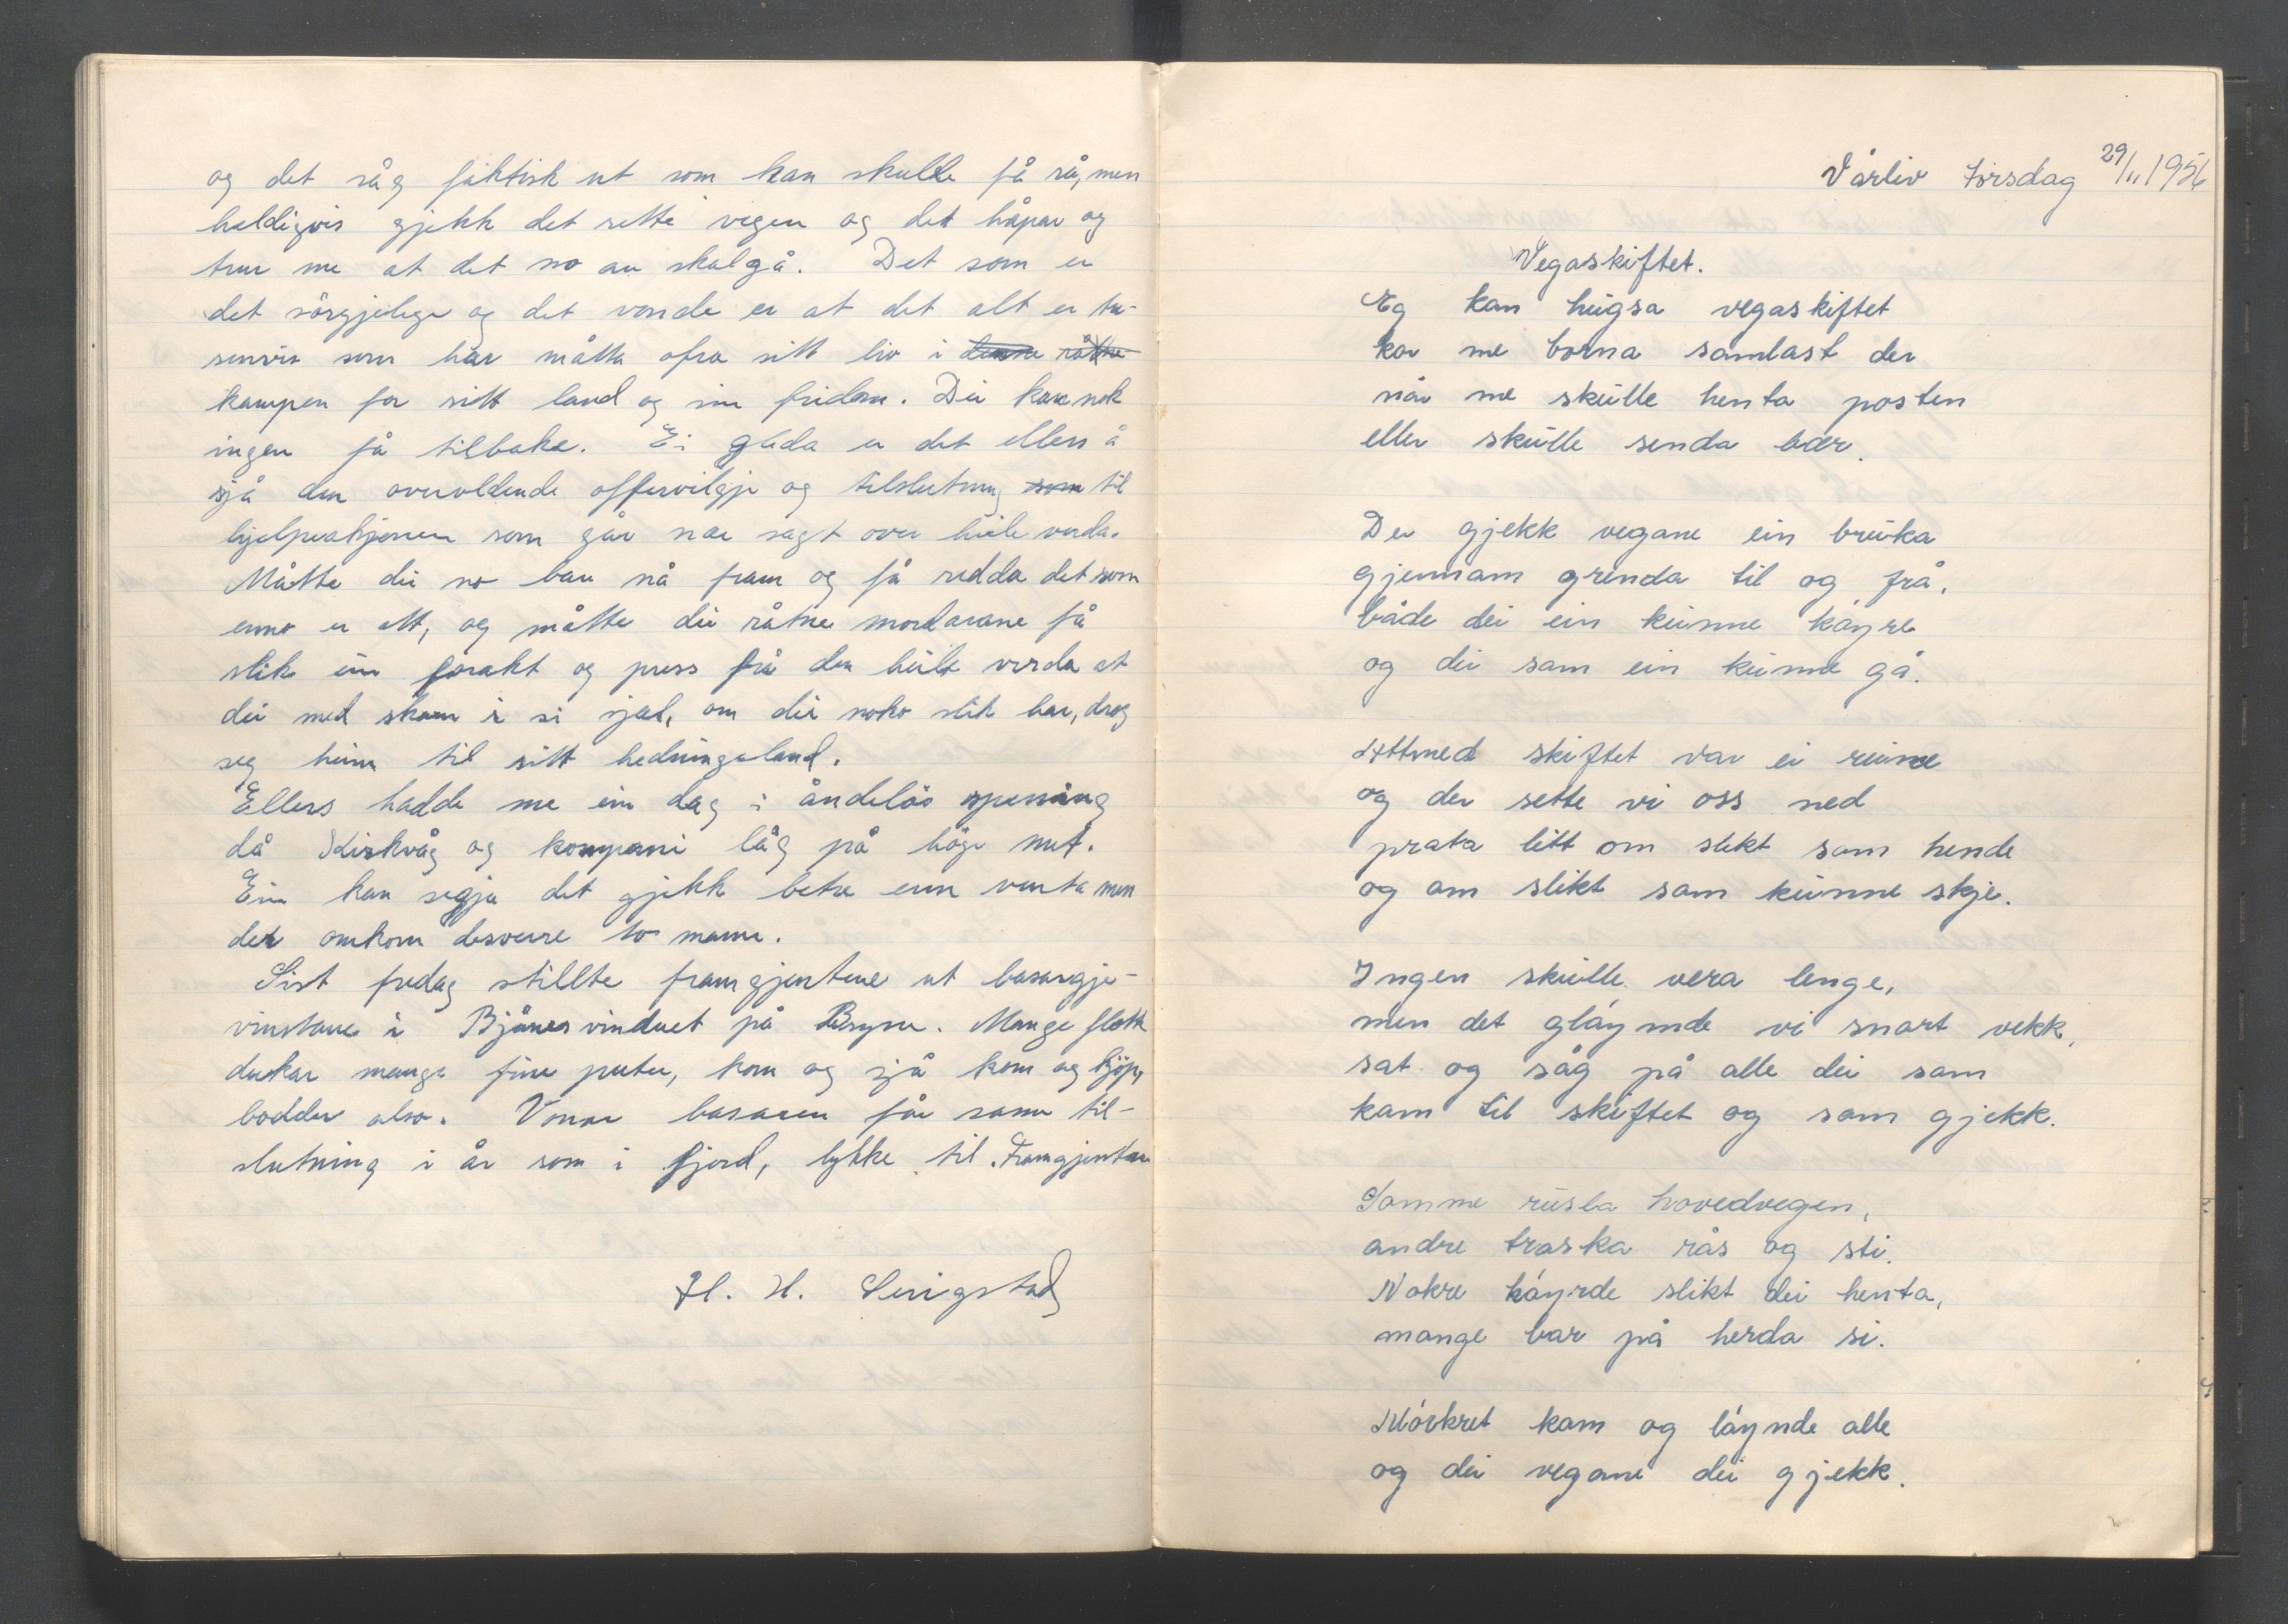 og det såg faktisk ut som han skulle få rå, men
heldigvis gjekk det rette vegen og det håpar og
trur me at det no au skal gå. Det som er
det sörgjelege og det vonde er at det alt er tu-
senvis som har måtta ofra sitt liv i denne råtne
kampen for sitt land og sin fridom. Dei kan nok
ingen få tilbake. Ei gleda er det ellers å
sjå den overveldende offervilgje og tilslutning som til
hjelpeaksjonen som går nær sagt over heile verda.
Måtte dei no bare nå fram og få redda det som
enno er att, og måtte dei råtne mordarane få
slik ein forakt og press frå den heile verda at
dei med skam i si sjel, om dei noko slik har, drog
seg heim til sitt hedningeland.
Ellers hadde me ein dag i åndelös spening
då Kirkvåg og kompani låg på höge nut.
Ein kan segja det gjekk betre enn venta men
det omkom desverre to mann.
Sist fredag stillte framgjentene ut basargje-
vinstane i Bjånesvinduet på Bryne. Mange flott
duskar mange fine puter, kom og sjå kom og kjöp,
lodder also. Vonar basaren får samme til-
slutning i år som i fjord, lykke til. Framgjentene
H. H. Serigstad
Vårliv Torsdag 29/11 1956
Vegaskiftet.
Eg kan hugsa vegaskiftet
kor me borna samlast der
når me skulle henta posten
eller skulle senda bær.
Der gjekk vegane ein bruka
gjennom grenda til og frå,
både dei ein kunne köyre
og dei som ein kunne gå.
Attmed skiftet var ei ruine
og der sette vi oss ned
prata litt om slikt som hende
og om slikt som kunne skje.
Ingen skulle vera lenge,
men det glöymde vi snart vekk,
sat og såg på alle dei som
kom til skiftet og som gjekk.
Somme rusla hovedvegen,
andre traska rås og sti.
Nokre köyrde slikt dei henta,
mange bar på herda si.
Mörkret kom og löynde alle
og dei vegane dei gjekk.